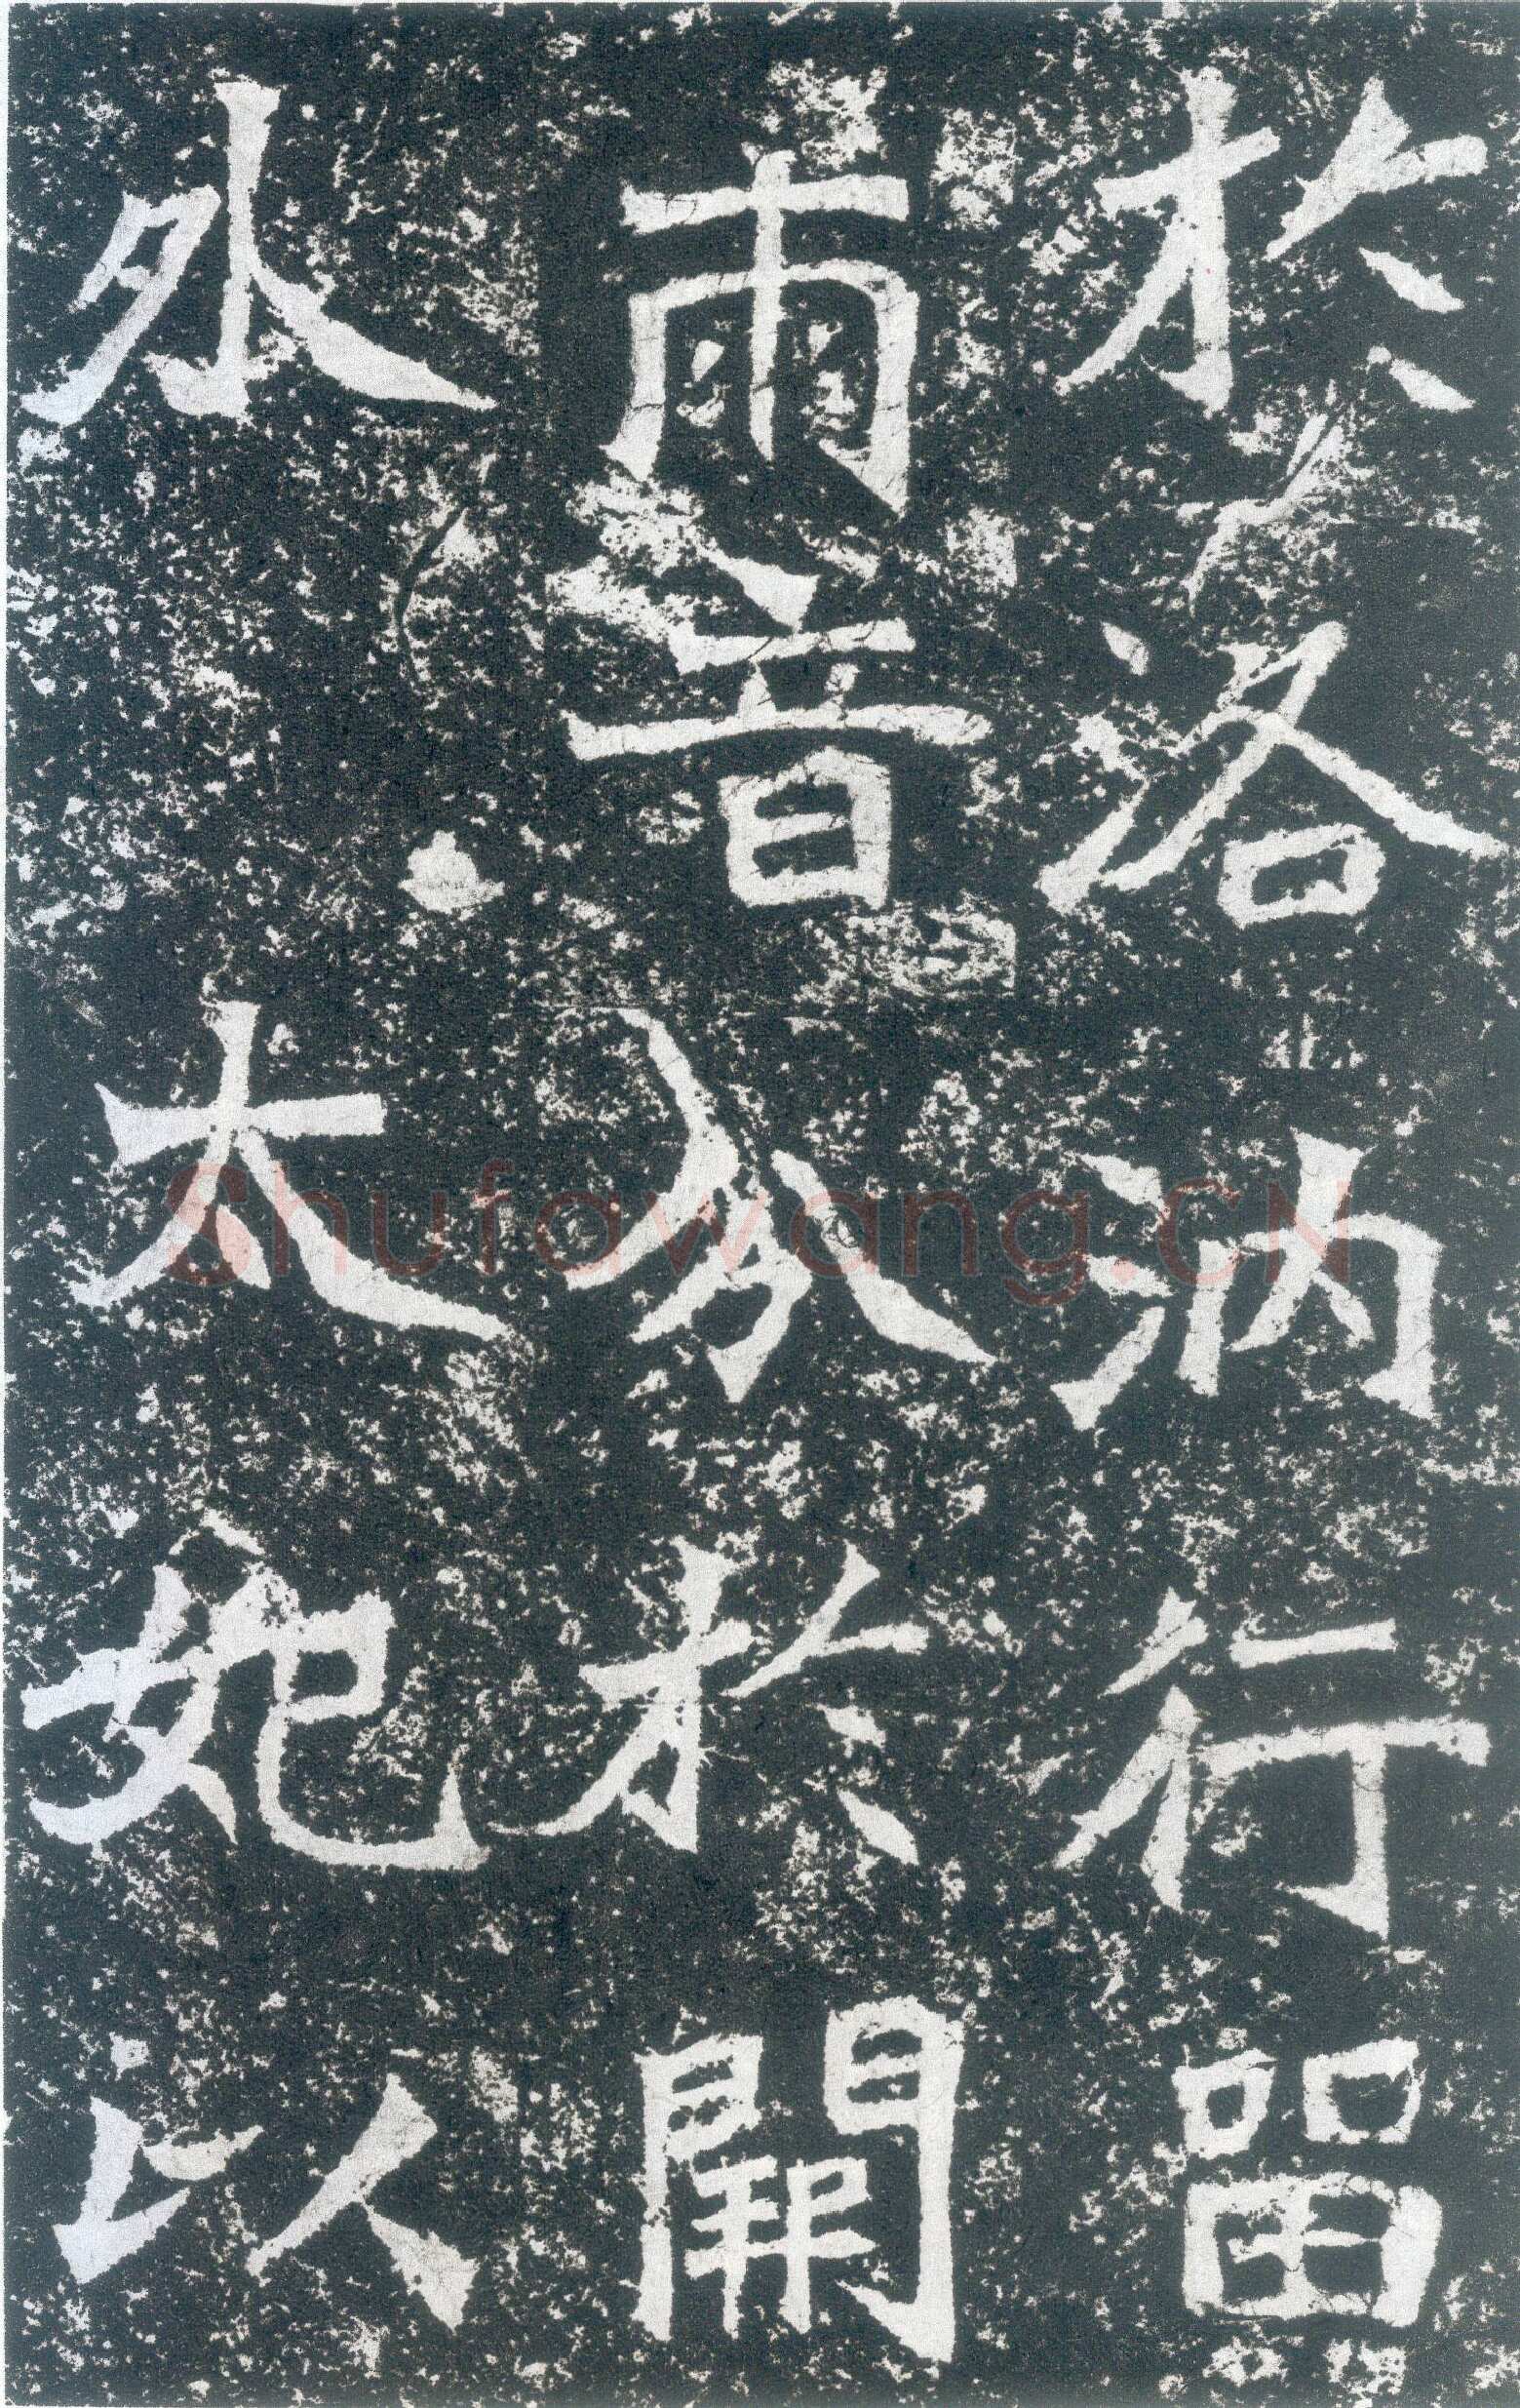 於洛汭行留
兩音分於闕
外太妃以
Shufawang.CN